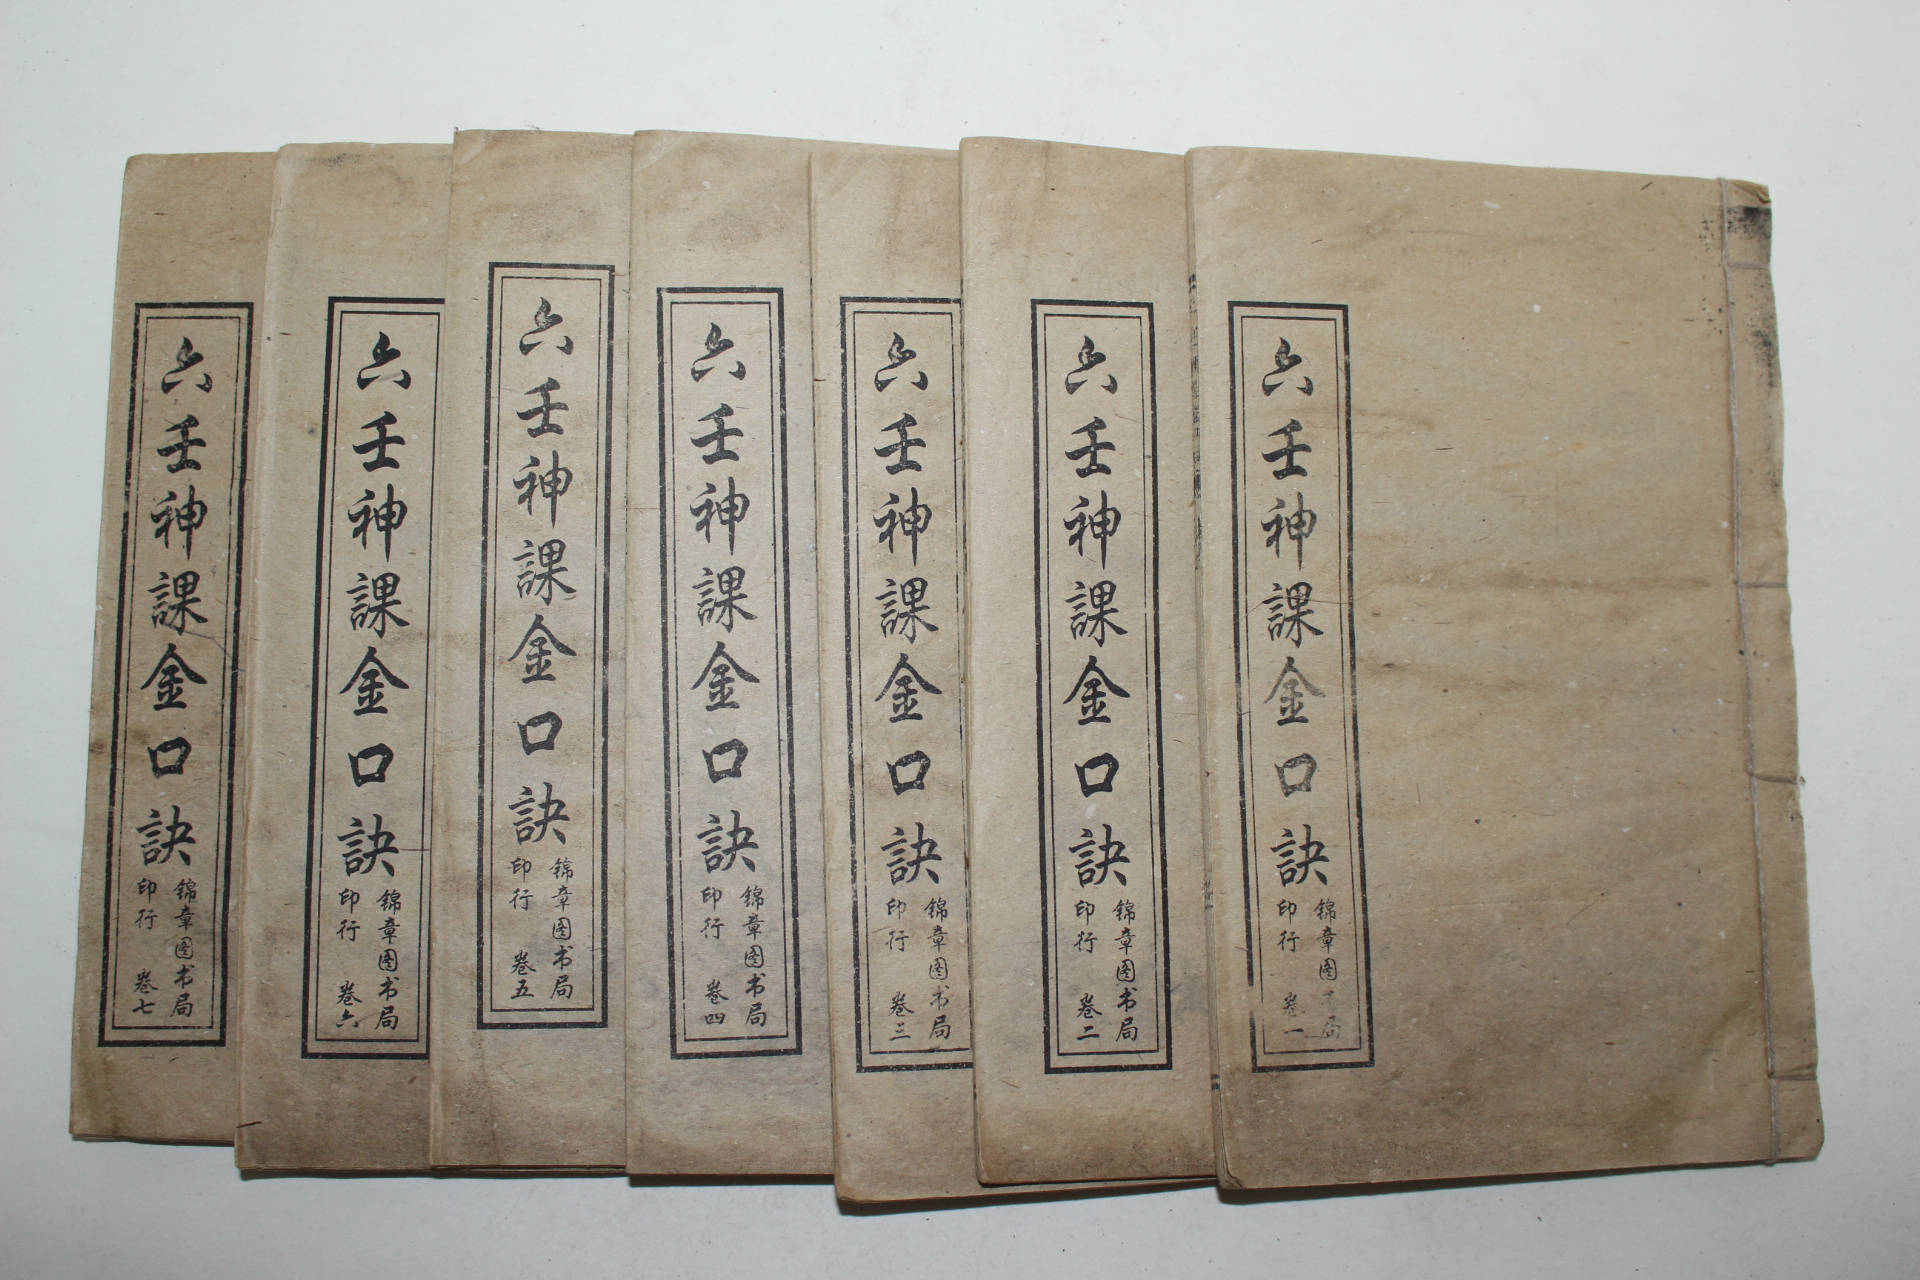 六壬神課金口訣
錦章图书局
印行 卷一
六壬神課金口訣
錦章图书局
印行 卷二
六壬神課金口訣
錦章图书局
印行 卷三
六壬神課金口訣
錦章图书局
印行 卷四
六壬神課金口訣
錦章图书局
印行 卷五
六壬神課金口訣
錦章图书局
印行 卷六
六壬神課金口訣
錦章图书局
印行 卷七